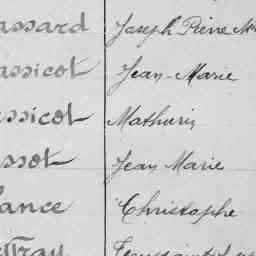 assard Joseph Pierre
assicot Jean-Marie
assicot Mathurin
ssot Jean Marie
ance Christophe